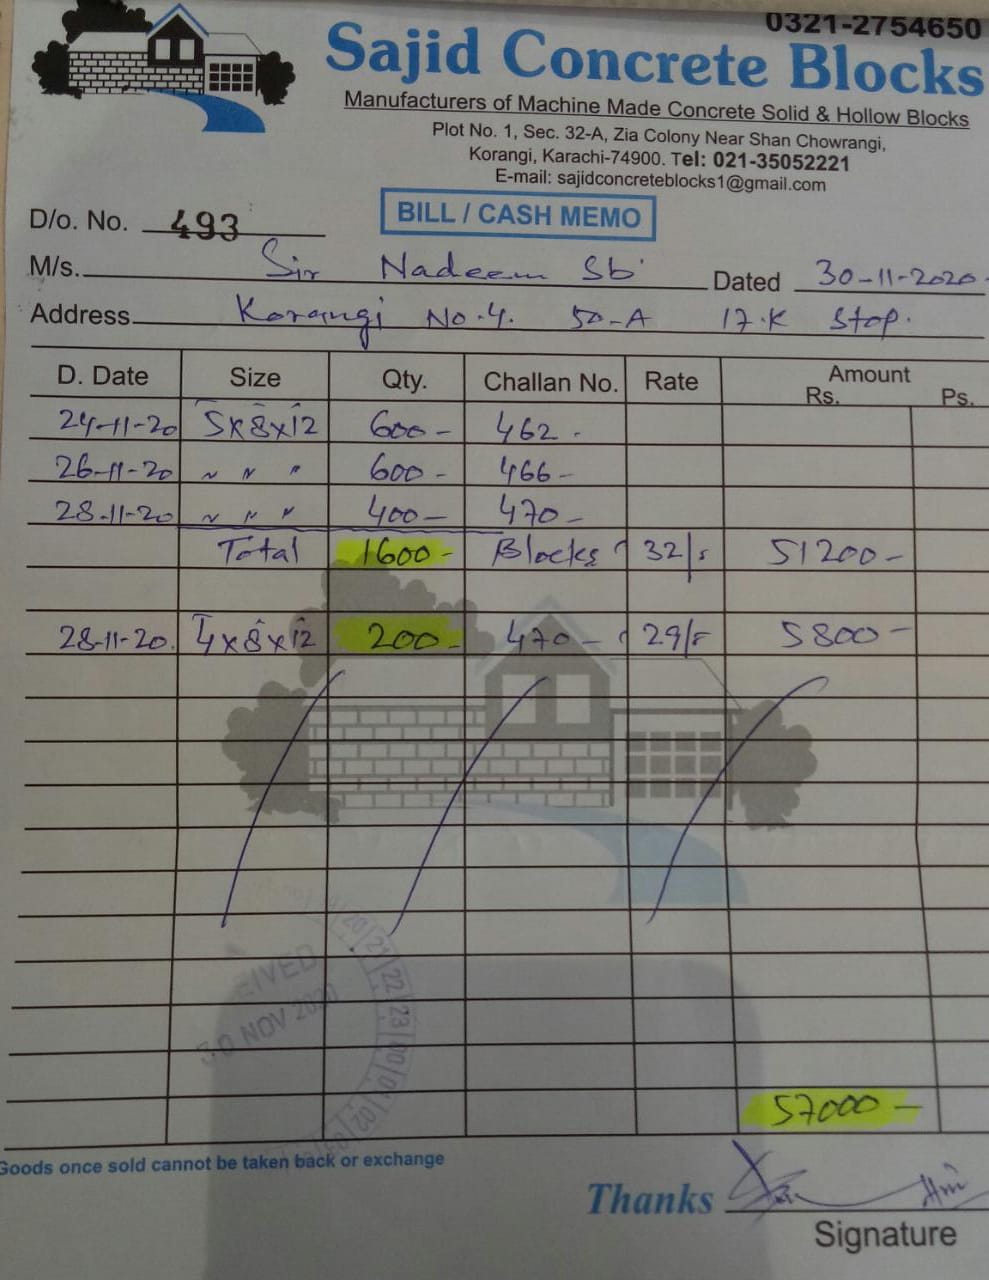 0321-2754650
Sajid Concrete Blocks
Manufacturers of Machine Made Concrete Solid & Hollow Blocks
Plot No. 1, Sec. 32-A, Zia Colony Near Shan Chowrangi,
Korangi, Karachi-74900. Tel: 021-35052221
E-mail: sajidconcreteblocks1@gmail.com
D/o. No. 493 BILL / CASH MEMO
M/s. Sir Nadeem Sb Dated 30-11-2020
Address Korangi No.4. 50-A 17.K Stop.
D. Date Size Qty. Challan No. Rate Amount
Rs. Ps.
24-11-20 5x8x12 600- 462.
26-11-20 " " " 600- 466-
28-11-20 " " " 400- 470-
Total 1600- Blocks 32/= 51200-
28-11-20. 4x8x12 200- 470- 29/= 5800-
20 21 22 23 00 01 02
EIVED
30 NOV 2020
57000-
Goods once sold cannot be taken back or exchange
Thanks
Signature